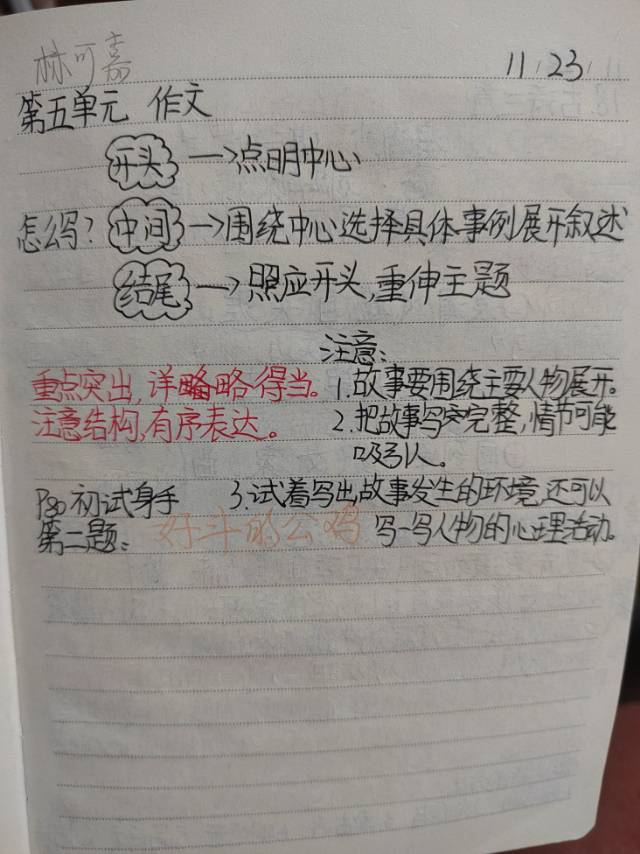 林可嘉 11/23/
第五单元 作文
开头 →点明中心
怎么写? 中间 →围绕中心选择具体事例展开叙述
结尾 →照应开头,重伸主题
注意:
重点突出,详略得当。 1.故事要围绕主要人物展开。
注意结构,有序表达。 2.把故事写完整,情节可能
吸引人。
P80初试身手 3.试着写出故事发生的环境,还可以
第二题: 好斗的公鸡 写一写人物的心理活动。